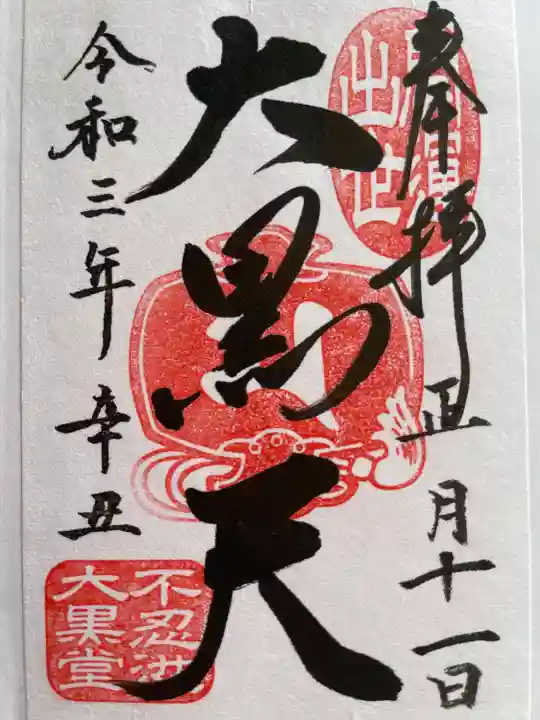 奉拝 正月十一日
大黒天
令和三年 辛丑
出世
不忍池
大黒堂